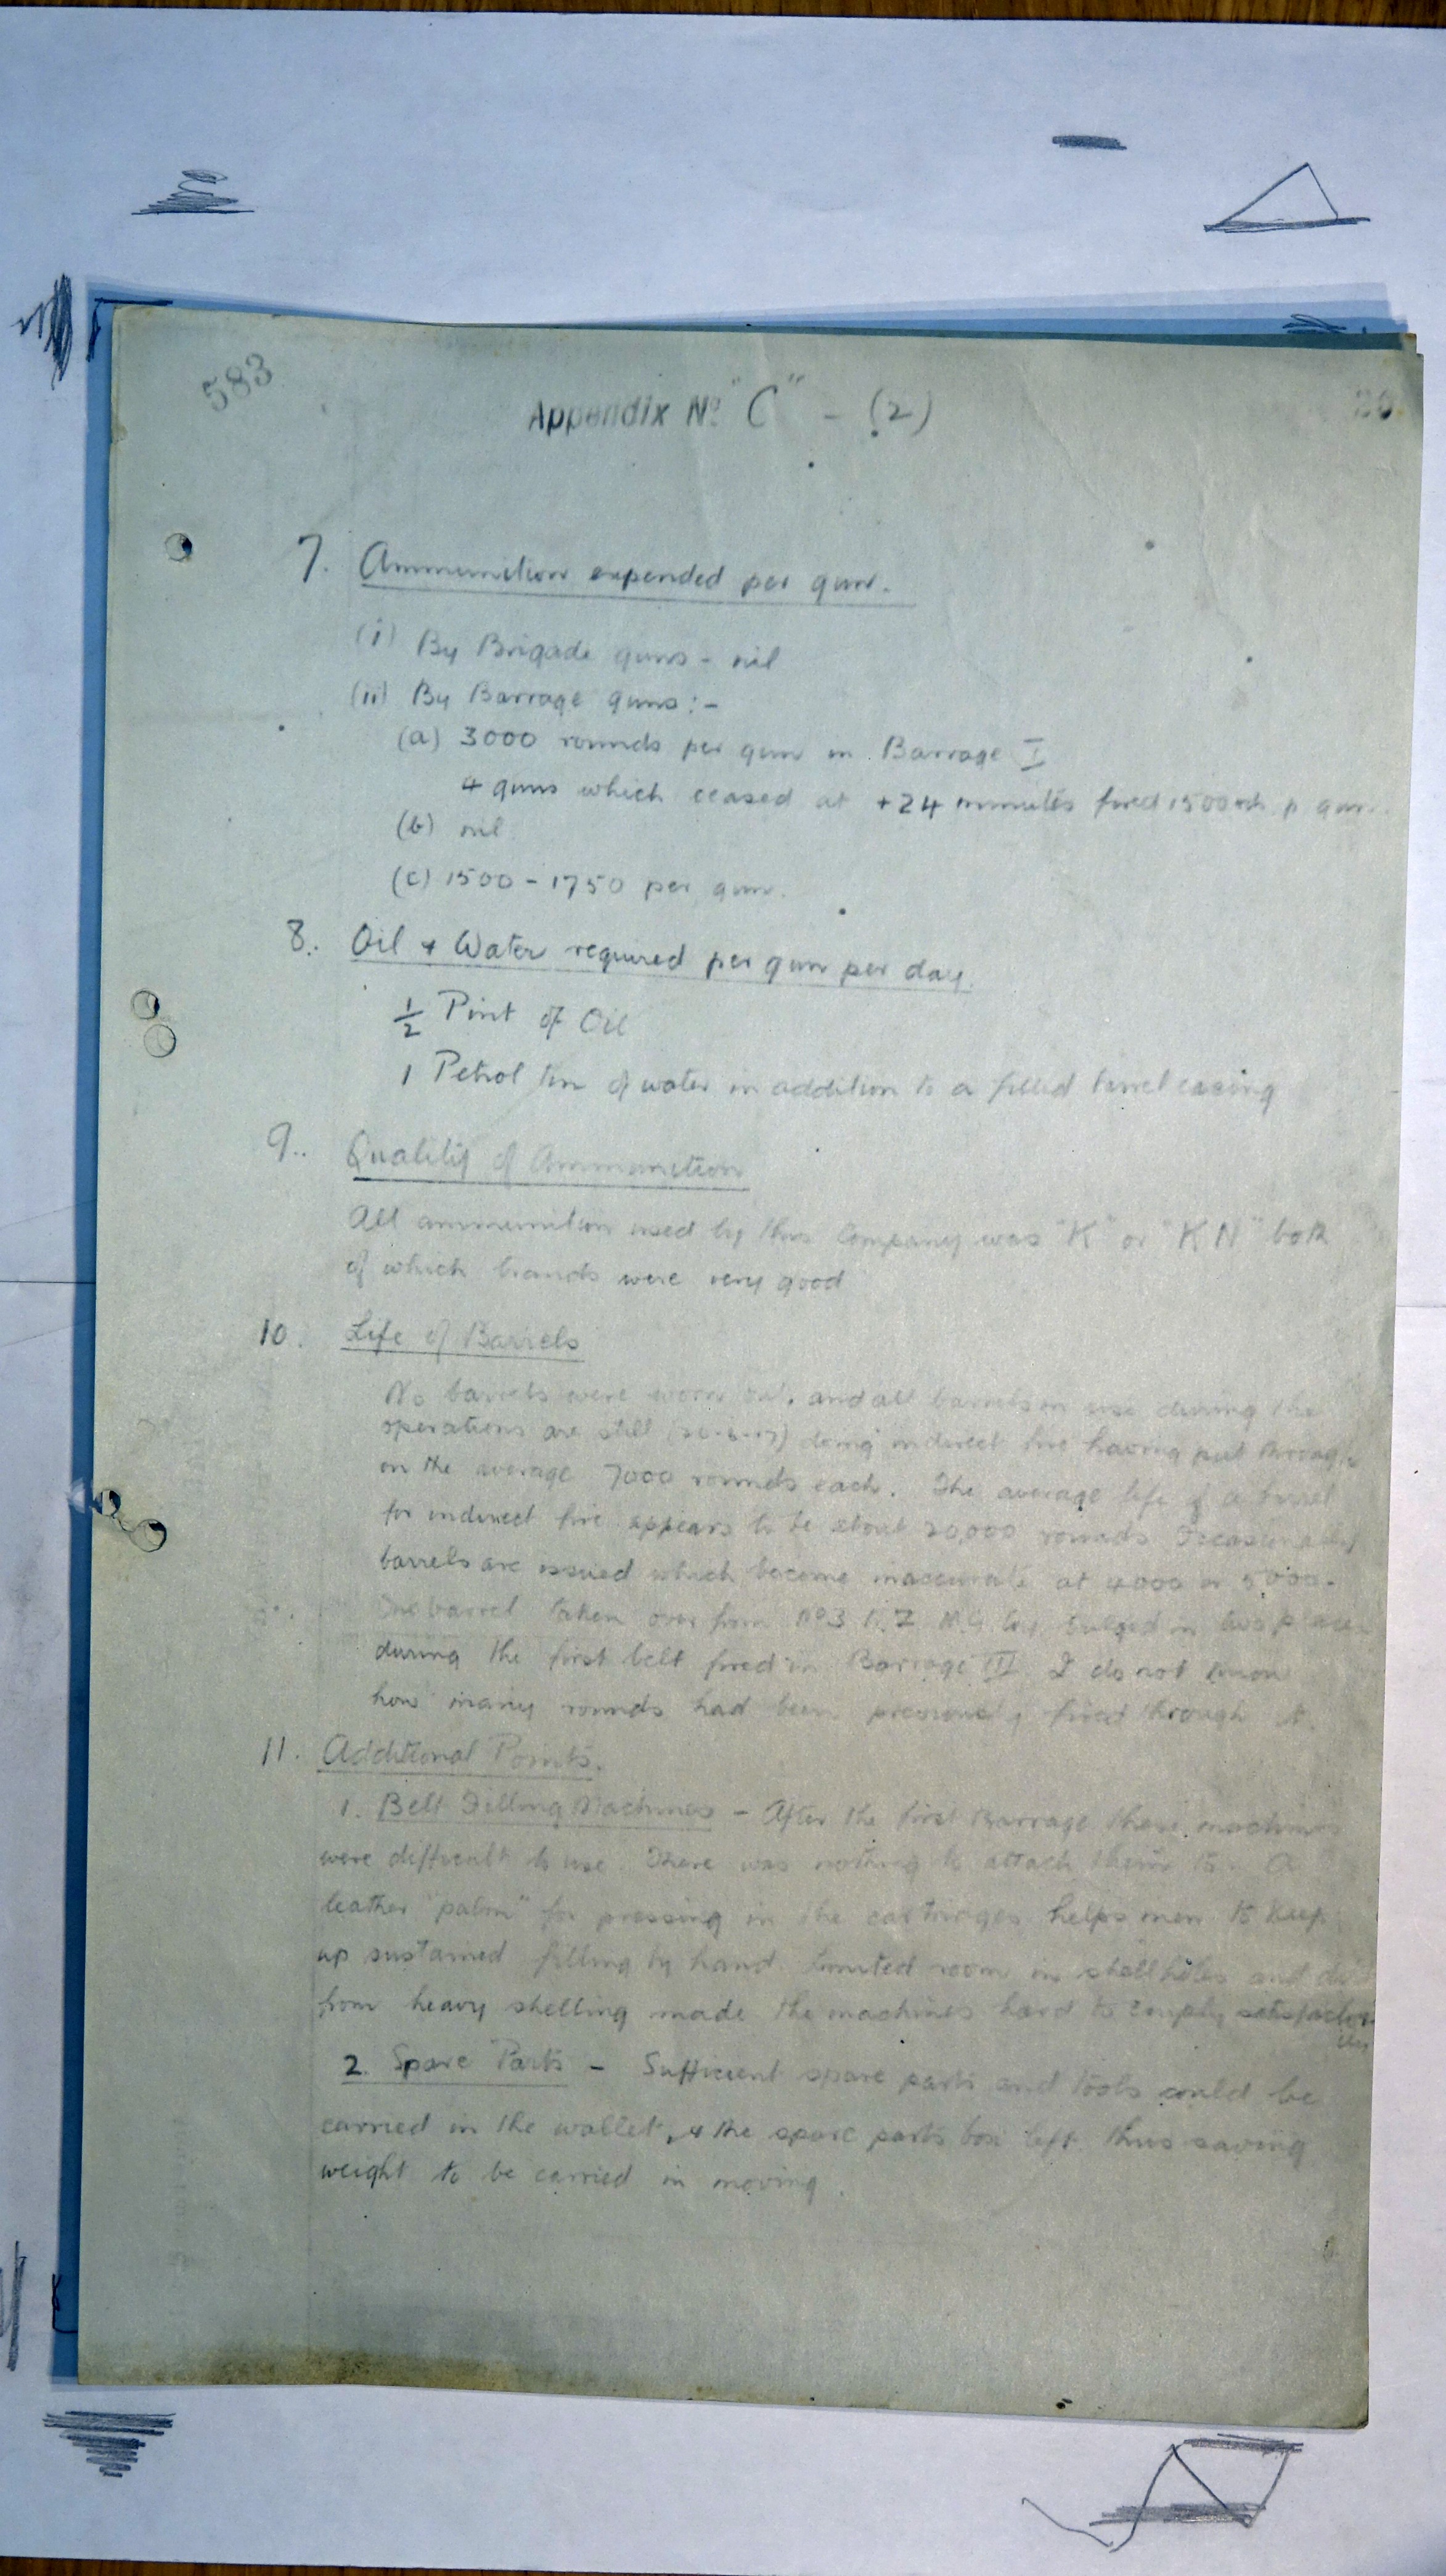 583
Appendix No "C" - (2)
7. Ammunition expended per gun.
(i) By Brigade guns - nil
(ii) By Barrage guns :-
(a) 3000 rounds per gun in Barrage I
4 guns which ceased at +24 minutes fired 1500 rds p. gun.
(b) nil
(c) 1500 - 1750 per gun.
8. Oil & Water required per gun per day.
1/2 Pint of Oil
1 Petrol tin of water in addition to a filled barrel casing
9. Quality of Ammunition
All ammunition used by this Company was "K" or "KN" both
of which brands were very good
10. Life of Barrels
No barrels were worn out, and all barrels in use during the
operations are still doing indirect fire having put through
on the average 7000 rounds each. The average life of a barrel
for indirect fire appears to be about 20,000 rounds Occasionally
barrels are issued which become inaccurate at 4000 or 5000.
One barrel taken over from No 3 N.Z M.G. Coy bulged in two places
during the first belt fired in Barrage III I do not know
how many rounds had been previously fired through it.
11. Additional Points.
1. Belt Filling Machines - After the first Barrage these machines
were difficult to use. There was nothing to attach them to. A
leather "palm" for pressing in the cartridges helps men to keep
up sustained filling by hand. Limited room in shell holes and dirt
from heavy shelling made the machines hard to employ satisfactor-
ily
2. Spare Parts - Sufficient spare parts and tools could be
carried in the wallet, & the spare parts box left thus saving
weight to be carried in moving.